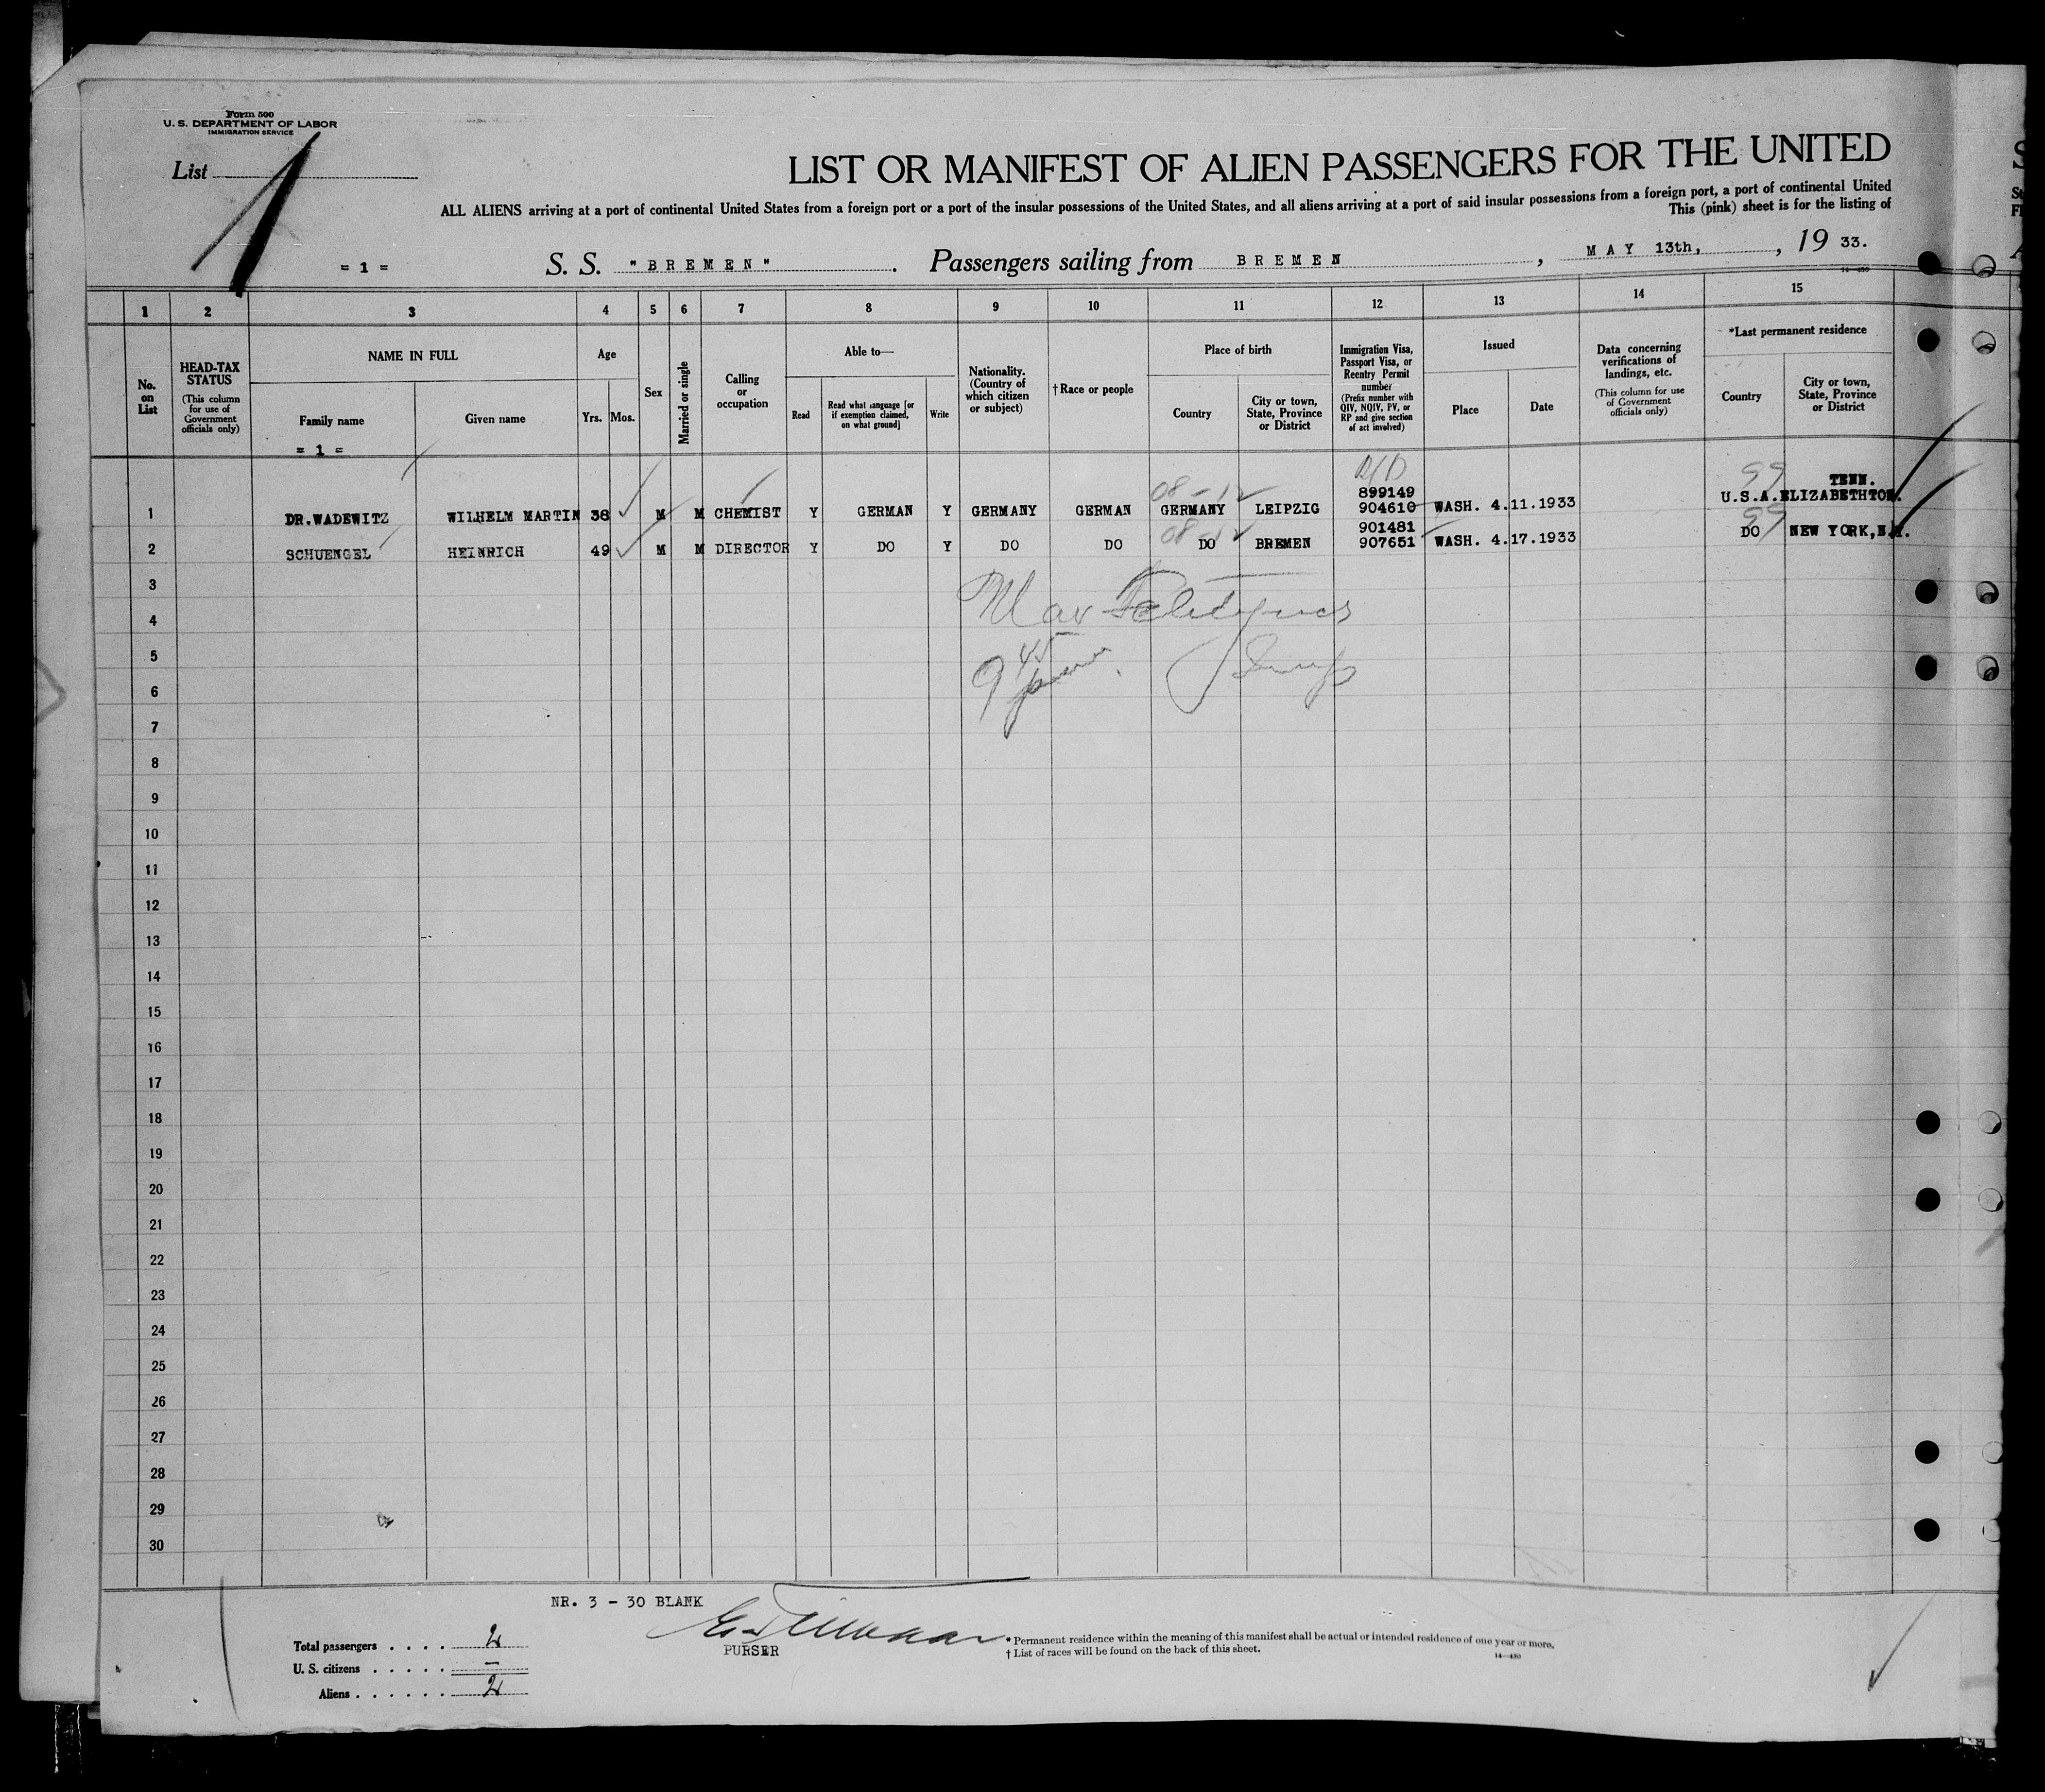 Form 500
U. S. DEPARTMENT OF LABOR
IMMIGRATION SERVICE
List 1
LIST OR MANIFEST OF ALIEN PASSENGERS FOR THE UNITED
ALL ALIENS arriving at a port of continental United States from a foreign port or a port of the insular possessions of the United States, and all aliens arriving at a port of said insular possessions from a foreign port, a port of continental United
This (pink) sheet is for the listing of
= 1 = S. S. "BREMEN". Passengers sailing from BREMEN, MAY 13th, , 19 33.
14—430
1 2 3 4 5 6 7 8 9 10 11 12 13 14 15
No. on List
HEAD-TAX STATUS
(This column for use of Government officials only)
NAME IN FULL
Family name
Given name
Age
Yrs. Mos.
Sex
Married or single
Calling or occupation
Able to—
Read
Read what language [or if exemption claimed, on what ground]
Write
Nationality. (Country of which citizen or subject)
†Race or people
Place of birth
Country
City or town, State, Province or District
Immigration Visa, Passport Visa, or Reentry Permit number
(Prefix number with QIV, NQIV, PV, or RP and give section of act involved)
Issued
Place
Date
Data concerning verifications of landings, etc.
(This column for use of Government officials only)
*Last permanent residence
Country
City or town, State, Province or District
= 1 =
99 TENN.
08-12 899149
1 DR.WADEWITZ WILHELM MARTIN 38 M M CHEMIST Y GERMAN Y GERMANY GERMAN GERMANY LEIPZIG 904610 WASH. 4.11.1933 U.S.A. ELIZABETHTON.
08-12 901481 99
2 SCHUENGEL HEINRICH 49 M M DIRECTOR Y DO Y DO DO DO BREMEN 907651 WASH. 4.17.1933 DO NEW YORK,N.Y.
3
4
5
6
7
8
9
10
11
12
13
14
15
16
17
18
19
20
21
22
23
24
25
26
27
28
29
30
NR. 3 - 30 BLANK
PURSER
Total passengers . . . . 2
U. S. citizens . . . . . —
Aliens . . . . . . 2
* Permanent residence within the meaning of this manifest shall be actual or intended residence of one year or more.
† List of races will be found on the back of this sheet.
14—430